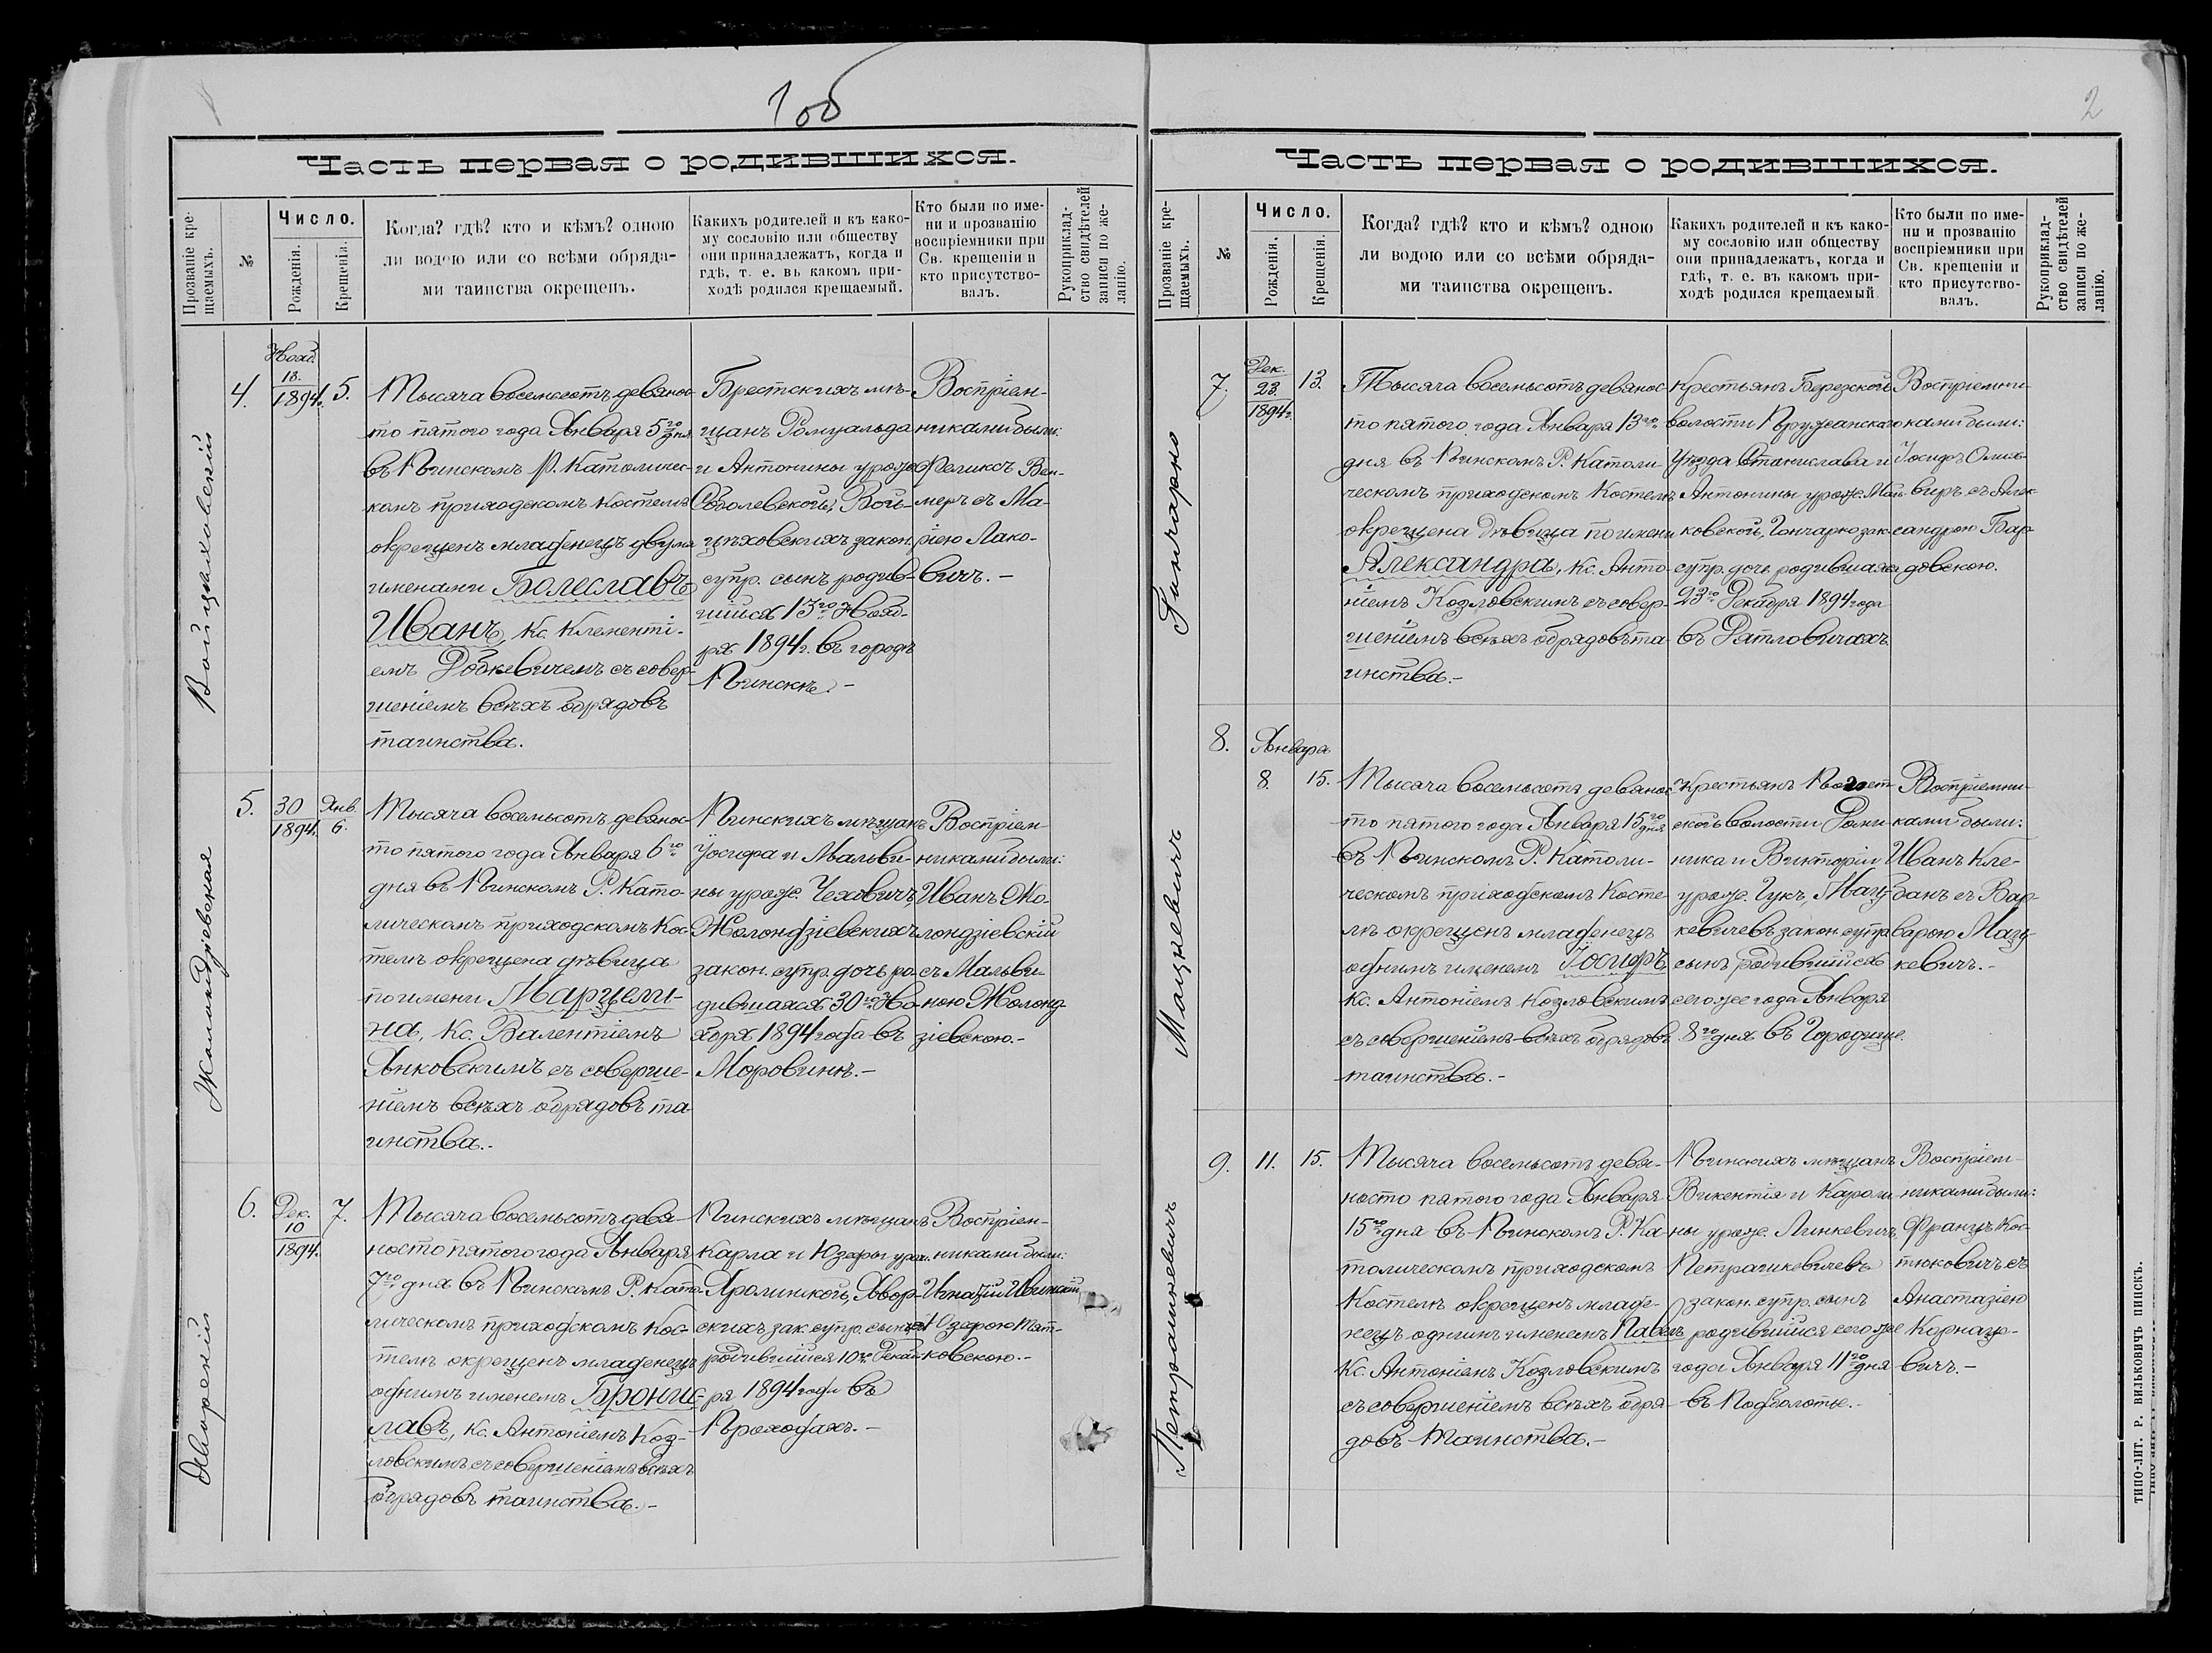 1об
Часть первая о родившихся.
Прозваніе кре-
щаемыхъ.
№
Число.
Рожденія.
Крещенія.
Когда? гдѣ? кто и кѣмъ? одною
ли водою или со всѣми обряда-
ми таинства окрещенъ.
Какихъ родителей и къ како-
му сословію или обществу
они принадлежатъ, когда и
гдѣ, т. е. въ какомъ при-
ходѣ родился крещаемый.
Кто были по име-
ни и прозванію
воспріемники при
Св. крещеніи и
кто присутство-
валъ.
Рукоприклад-
ство свидѣтелей
записи по же-
ланію.
Войцѣховскій
4.
Нояб.
13.
1894г.
5.
Тысяча восемьсотъ девянос-
то пятого года Января 5го дня
въ Пинскомъ Р. Католичес-
комъ приходскомъ Костелѣ
окрещенъ младенецъ двумя
именами Болеславъ
Иванъ, Кс. Клементі-
емъ Робкевичемъ съ совер-
шеніемъ всѣхъ обрядовъ
таинства.
Брестскихъ мѣ-
щанъ Ромуальда
и Антонины урожд.
Соболевской, Вой-
цѣховскихъ закон.
супр. сынъ родив-
шійся 13го Нояб-
ря 1894г. въ городѣ
Пинскѣ.-
Воспріем-
никами были:
Феликсъ Вен-
меръ съ Ма-
ріею Лахо-
вичъ.-
Жолондзіевская
5.
30
1894г.
Янв.
6.
Тысяча восемьсотъ девянос-
то пятого года Января 6го
дня въ Пинскомъ Р. Като-
лическомъ приходскомъ Кос-
телѣ окрещена дѣвица
по имени Марцели-
на, Кс. Валентіемъ
Янковскимъ съ соверше-
ніемъ всѣхъ обрядовъ та-
инства.-
Пинскихъ мѣщанъ
Іосифа и Мальви-
ны урожд. Чеховичъ,
Жолондзіевскихъ
закон. супр. дочь ро-
дившаяся 30го Но-
ября 1894 года въ
Моровинѣ.-
Воспріем-
никами были:
Иванъ Жо-
лондзіевскій
съ Мальви-
ною Жолонд-
зіевскою.-
Яворскій
6.
Дек.
10
1894г.
7.
Тысяча восемьсотъ девя-
носто пятого года Января
7го дня въ Пинскомъ Р. Като-
лическомъ приходскомъ Кос-
телѣ окрещенъ младенецъ
однимъ именемъ Бронис-
лавъ, Кс. Антоніемъ Коз-
ловскимъ съ совершеніемъ всѣхъ
обрядовъ таинства.-
Пинскихъ мѣщанъ
Карла и Юзефы урож.
Яролинской, Явор-
скихъ зак. супр. сынъ
родившійся 10го Декаб-
ря 1894 года въ
Проходахъ.-
Воспріем-
никами были:
Игнацій
съ Юзефою
ковскою.-
2
Часть первая о родившихся.
Прозваніе кре-
щаемыхъ.
№
Число.
Рожденія.
Крещенія.
Когда? гдѣ? кто и кѣмъ? одною
ли водою или со всѣми обряда-
ми таинства окрещенъ.
Какихъ родителей и къ како-
му сословію или обществу
они принадлежатъ, когда и
гдѣ, т. е. въ какомъ при-
ходѣ родился крещаемый.
Кто были по име-
ни и прозванію
воспріемники при
Св. крещеніи и
кто присутство-
валъ.
Рукоприклад-
ство свидѣтелей
записи по же-
ланію.
Гинчарко
7.
Дек.
23.
1894г.
13.
Тысяча восемьсотъ девянос-
то пятого года Января 13го
дня въ Пинскомъ Р. Католи-
ческомъ приходскомъ Костелѣ
окрещена дѣвица по имени
Александра, Кс. Анто-
ніемъ Козловскимъ съ совер-
шеніемъ всѣхъ обрядовъ та-
инства.-
Крестьянъ Березской
волости Пружанскаго
Уѣзда Станислава и
Антонины урожд. Мань-
ковской, Гончарко зак.
супр. дочь родившаяся
23го Декабря 1894 года
въ Ратловичахъ.
Воспріемни-
ками были:
Іосифъ Олих-
виръ съ Алек-
сандрою Бар-
довскою.
Мацкевичъ
8.
Января
8.
15.
Тысяча восемьсотъ девянос-
то пятого года Января 15го дня
въ Пинскомъ Р. Католи-
ческомъ приходскомъ Косте-
лѣ окрещенъ младенецъ
однимъ именемъ Іосифъ,
Кс. Антоніемъ Козловскимъ
съ совершеніемъ всѣхъ обрядовъ
таинства.-
Крестьянъ Погост-
ской волости Доми-
ника и Викторіи
урожд. Гукъ, Мац-
кевичевъ закон. супр.
сынъ родившійся
сего же года Января
8го дня въ Городище.
Воспріемни-
ками были:
Иванъ Кле-
банъ съ Вар-
варою Мац-
кевичъ.-
Петрашкевичъ
9.
11.
15.
Тысяча восемьсотъ девя-
носто пятого года Января
15го дня въ Пинскомъ Р. Ка-
толическомъ приходскомъ
Костелѣ окрещенъ младе-
нецъ однимъ именемъ Павелъ
Кс. Антоніемъ Козловскимъ
съ совершеніемъ всѣхъ обря-
довъ таинства.-
Пинскихъ мѣщанъ
Викентія и Кароли-
ны урожд. Линкевичъ,
Петрашкевичевъ
закон. супр. сынъ
родившійся сего же
года Января 11го дня
въ Подболотье.-
Воспріем-
никами были:
Францъ Кос-
тюковичъ съ
Анастазіею
Корнаце-
вичъ.-
ТИПО-ЛИТ. Р. ВИЛЬКОВИЧЪ ПИНСКЪ.